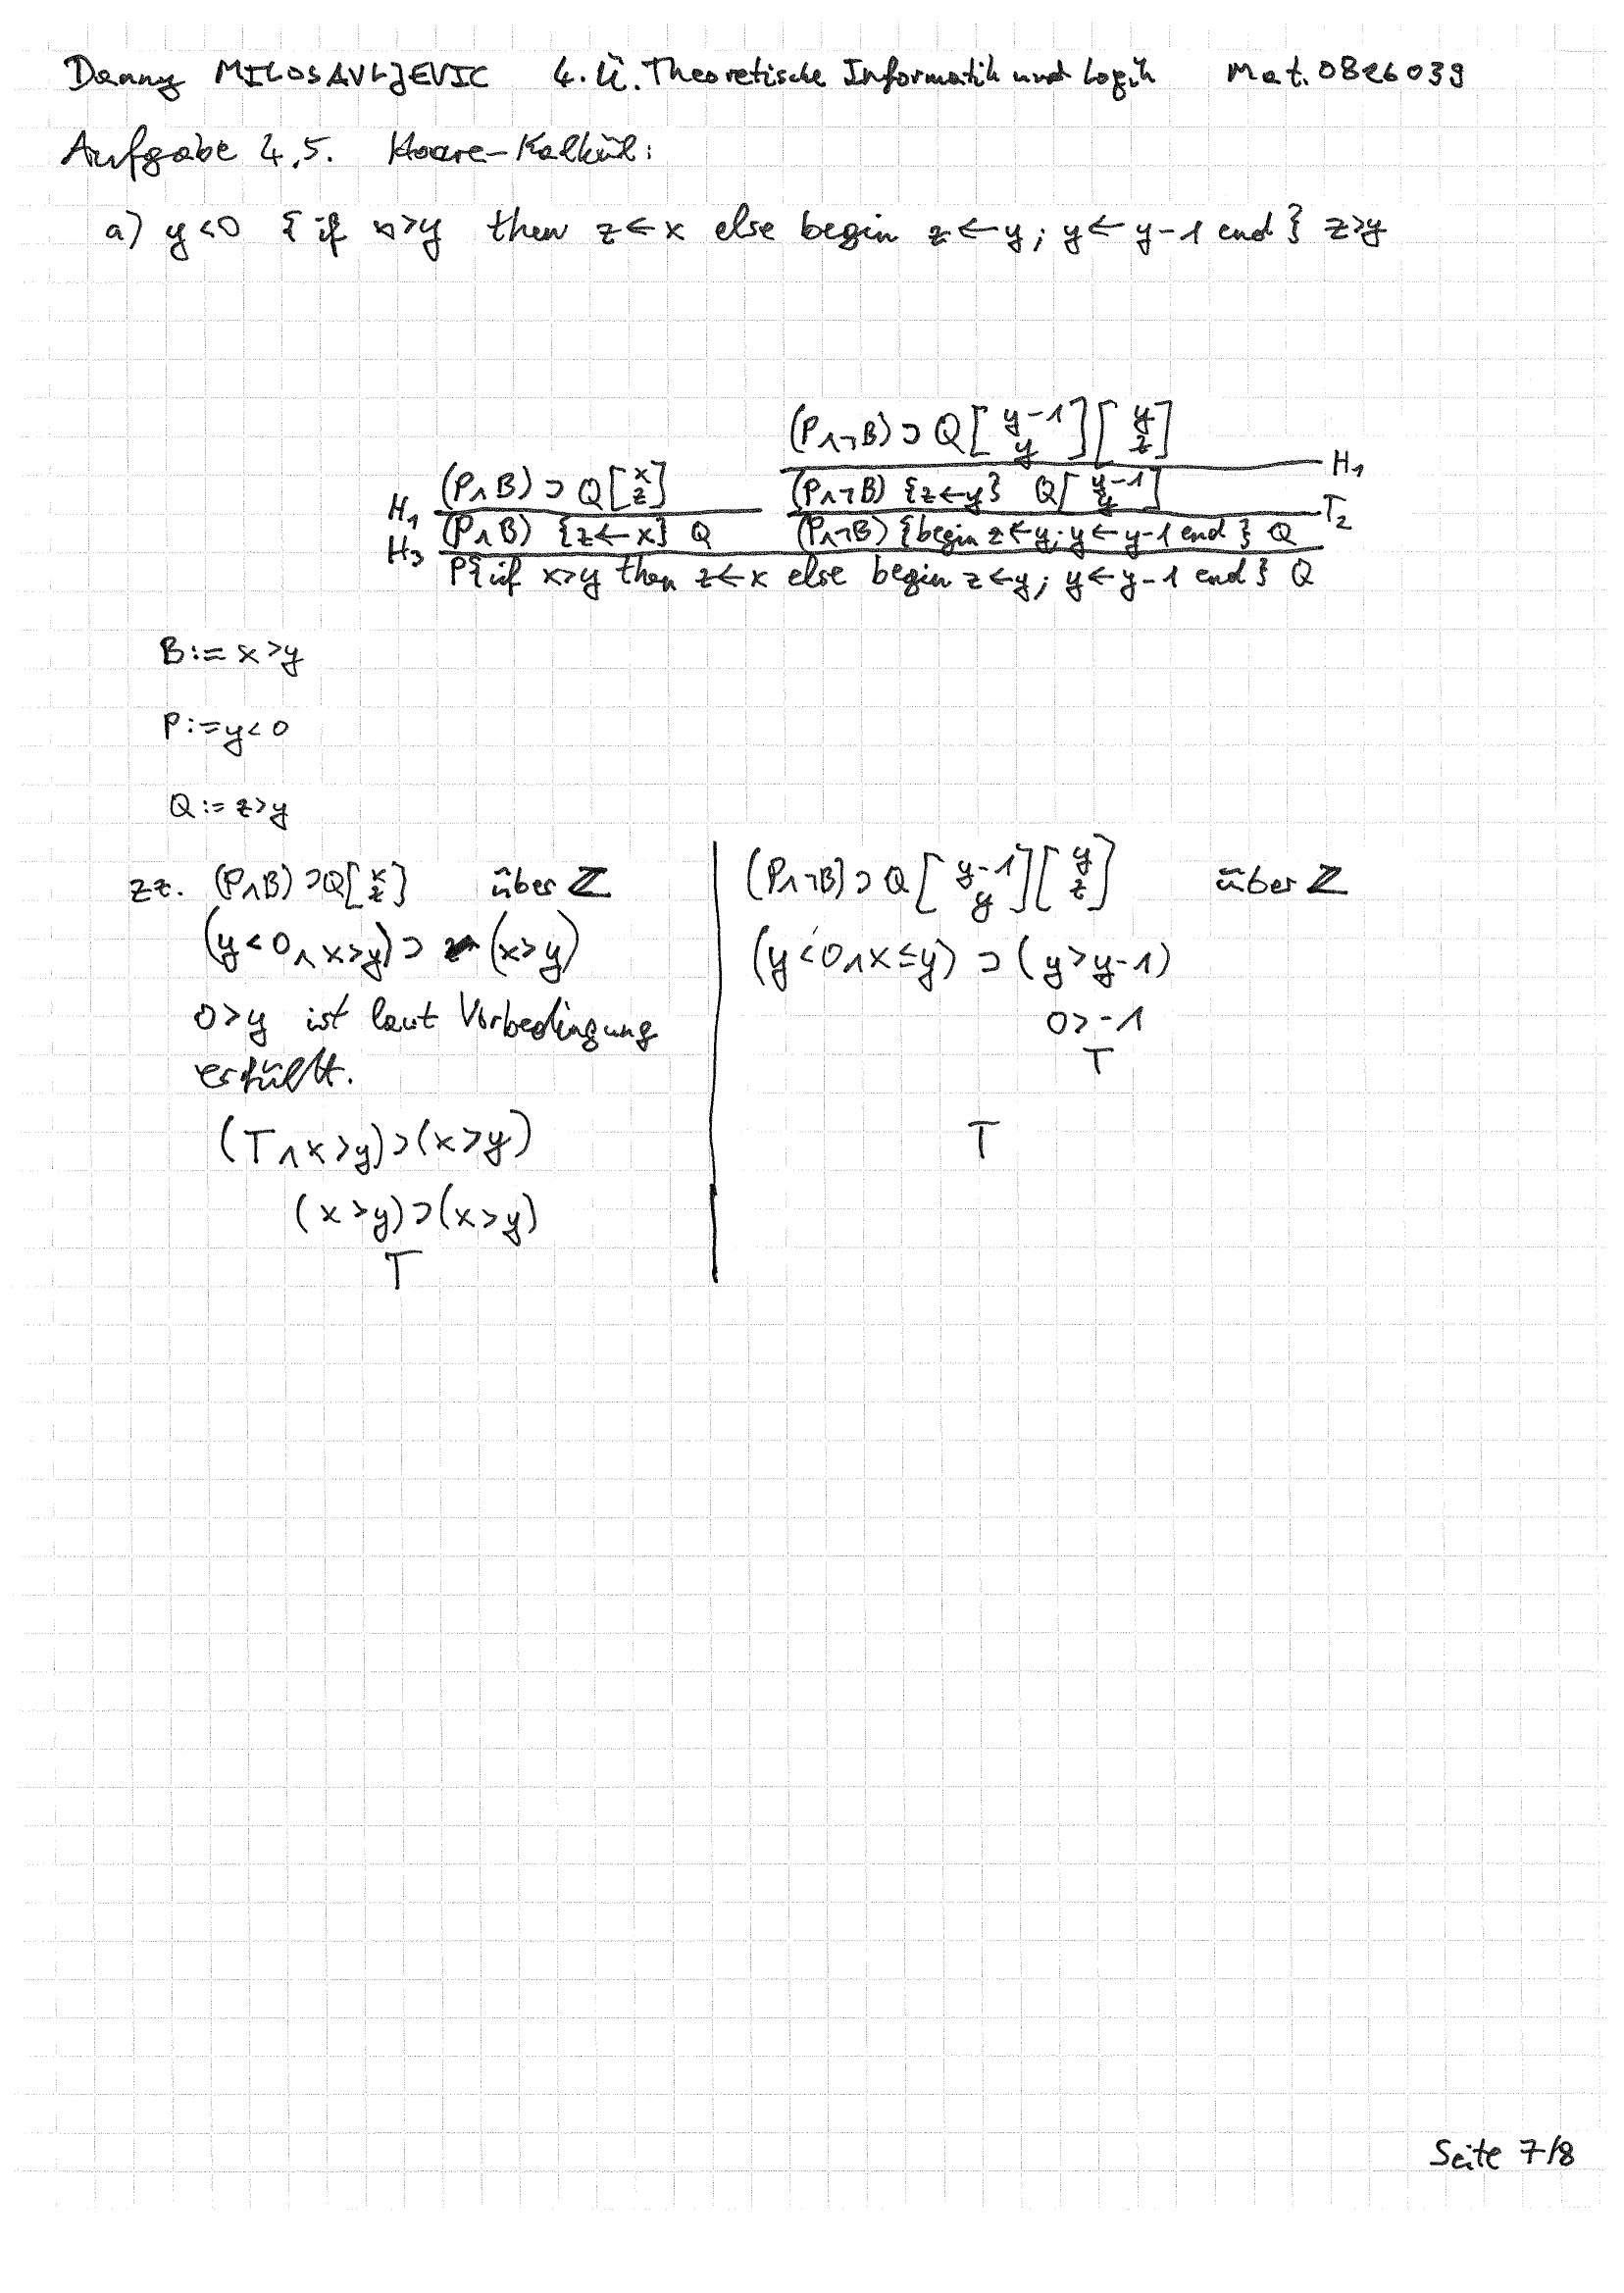 Danny MILOSAVLJEVIC 4.Ü. Theoretische Informatik und Logik Mat. 0826039
Aufgabe 4.5. Hoare-Kalkül:
a) y<0 {if x>y then z←x else begin z←y; y←y-1 end} z>y
(P∧¬B) ⊃ Q[y-1 y][y z]
H₁
(P∧B) ⊃ Q[x z] (P∧¬B) {z←y} Q[y-1 y]
H₁ T₂
(P∧B) {z←x} Q (P∧¬B) {begin z←y; y←y-1 end} Q
H₃
P{if x>y then z←x else begin z←y; y←y-1 end} Q
B:= x>y
P:= y<0
Q:= z>y
zz. (P∧B) ⊃ Q[x z] über ℤ
(y<0 ∧ x>y) ⊃ (x>y)
0>y ist laut Vorbedingung
erfüllt.
(T ∧ x>y) ⊃ (x>y)
(x>y) ⊃ (x>y)
T
(P∧¬B) ⊃ Q[y-1 y][y z] über ℤ
(y<0 ∧ x≤y) ⊃ (y>y-1)
0>-1
T
T
Seite 7/8